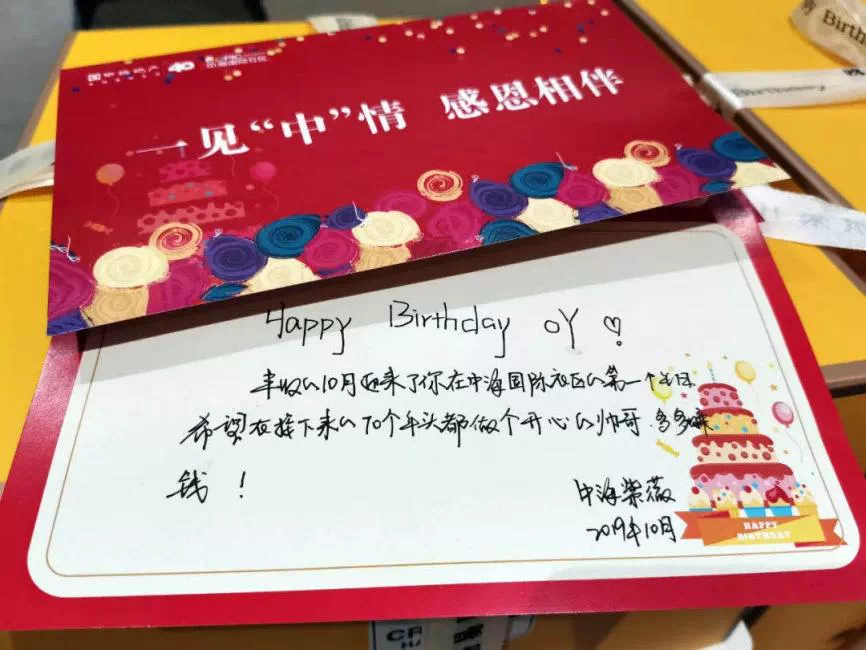 中海地产
40
中海国际社区
一见“中”情 感恩相伴
Happy Birthday OY
丰收的10月迎来了你在中海国际社区的第一个生日
希望在接下来的70个年头都做个开心的帅哥.多多赚
钱！
中海紫薇
2019年10月
HAPPY
BIRTHDAY
Birth
Birthday